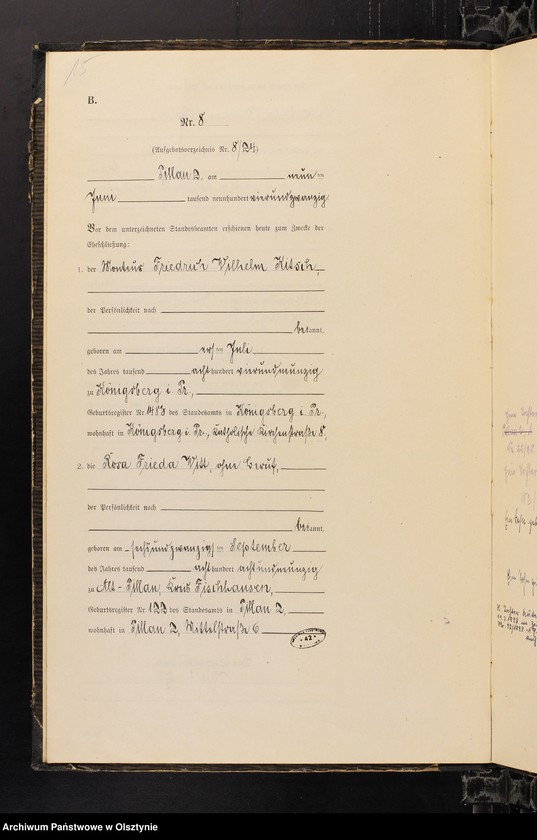 15
B.
Nr. 8
(Aufgebotsverzeichnis Nr. 8/24)
Pillau 2, am neunten
Juni tausend neunhundert vierundzwanzig
Vor dem unterzeichneten Standesbeamten erschienen heute zum Zwecke der
Eheschließung:
1. der Monteur Friedrich Wilhelm Kitsch,
der Persönlichkeit nach
bekannt,
geboren am ersten Juli
des Jahres tausend achthundert vierundneunzig
zu Königsberg i. Pr.,
Geburtsregister Nr. 483 des Standesamts in Königsberg i. Pr.,
wohnhaft in Königsberg i. Pr., katholische Kirchenstraße 8,
2. die Rosa Frieda Witt, ohne Beruf,
der Persönlichkeit nach
bekannt,
geboren am sechsundzwanzigsten September
des Jahres tausend achthundert achtundneunzig
zu Alt-Pillau, Kreis Fischhausen,
Geburtsregister Nr. 123 des Standesamts in Pillau 2,
wohnhaft in Pillau 2, Mittelstraße 6
* 42 *
Archiwum Państwowe w Olsztynie